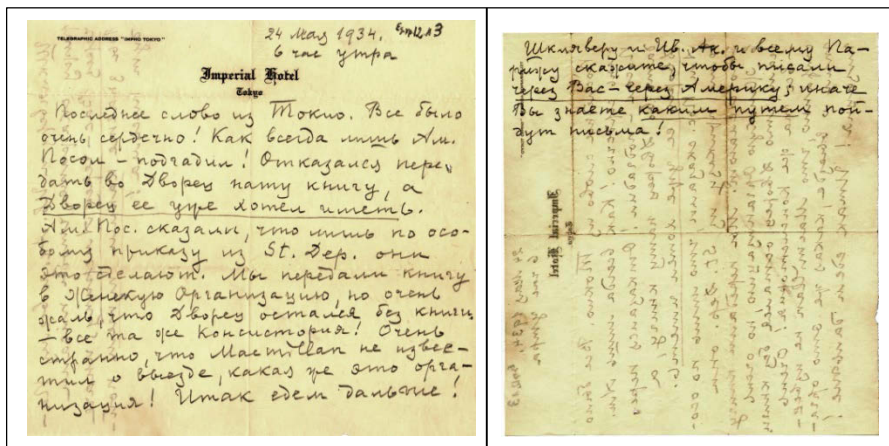 TELEGRAPHIC ADDRESS "IMPHO TOKYO"
24 Мая 1934.
6 час утра
Imperial Hotel
Tokyo
Последнее слово из Токио. Все было
очень сердечно! Как всегда лишь Ам.
Посол – подгадил! Отказался пере-
дать во Дворец нашу книгу, а
Дворец ее уже хотел иметь.
Ам. Пос. сказали, что лишь по осо-
бому приказу из St. Деp. они
это сделают. Мы передали книгу
в Женскую Организацию, но очень
жаль, что Дворец остался без книги
– все та же Консистория! Очень
странно, что Macmillan не извес-
тил о выезде, какая же это орга-
низация! Итак едем дальше!
Шкляверу и Ив. Ак. и всему Па-
рижу скажите, чтобы писали
через Вас – через Америку; иначе
Вы знаете, каким путем пой-
дут письма!
Imperial Hotel
Tokyo